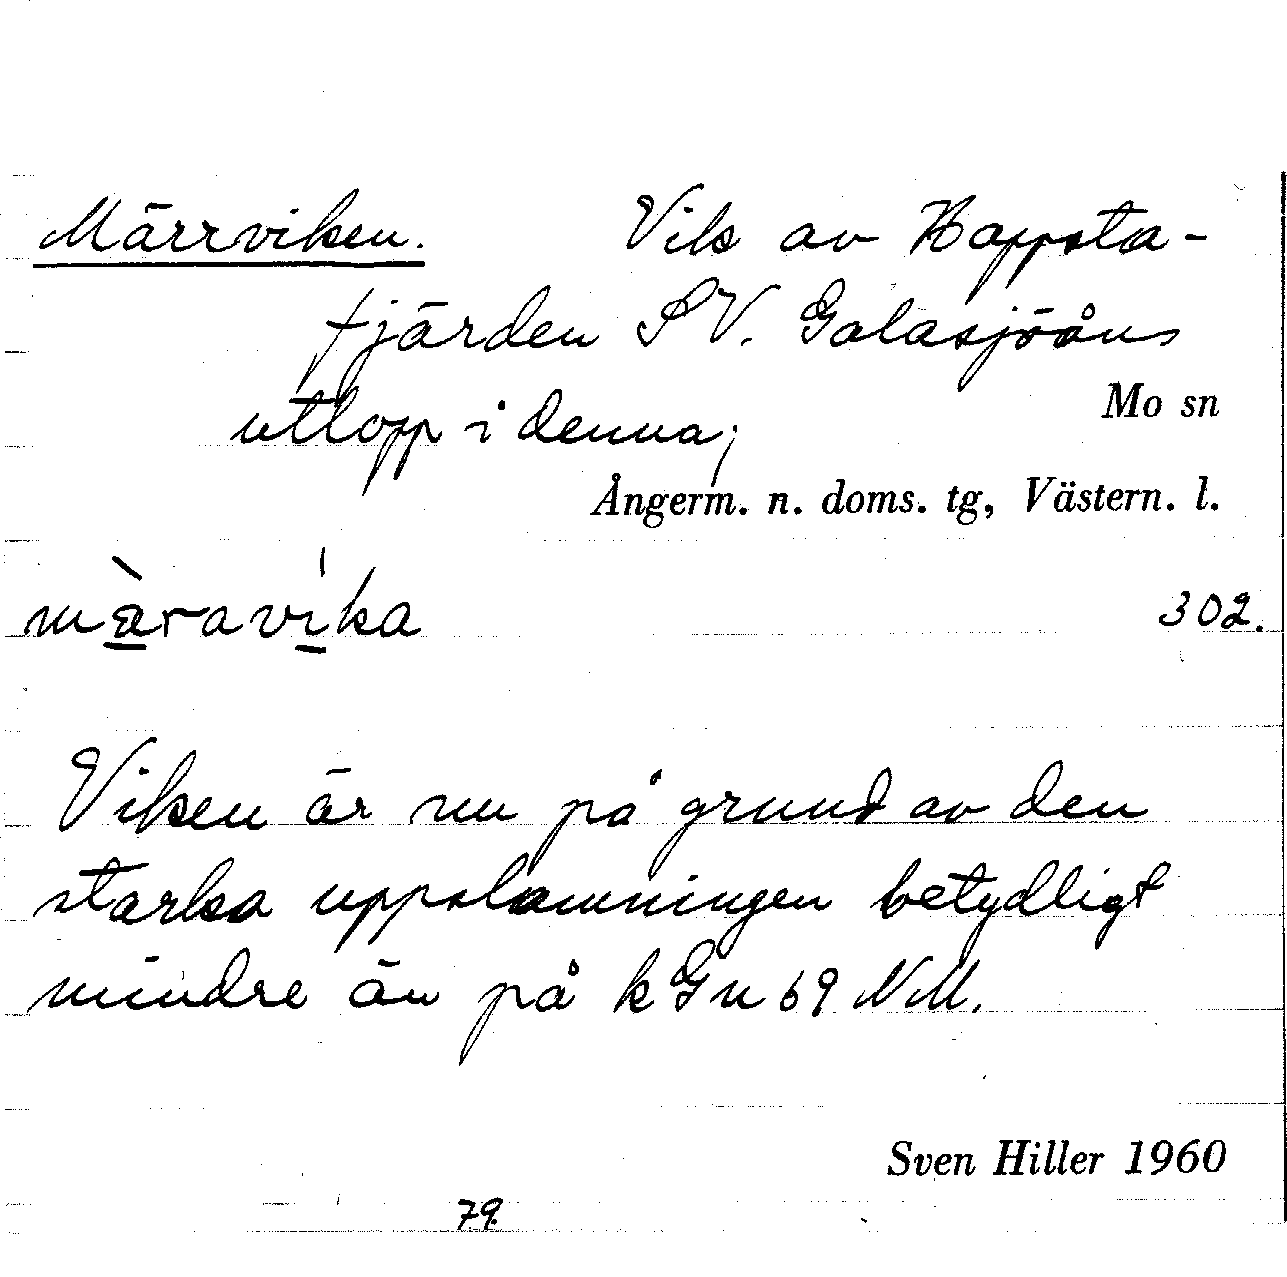 Märrviken. Vik av Happsta-
fjärden SV. Galasjöåns
Mo sn
utlopp i denna;
Ångerm. n. doms. tg, Västern. l.
màravíka 302.
Viken är nu på grund av den
starka uppslamningen betydligt
mindre än på kGn 69 NM.
Sven Hiller 1960
79.